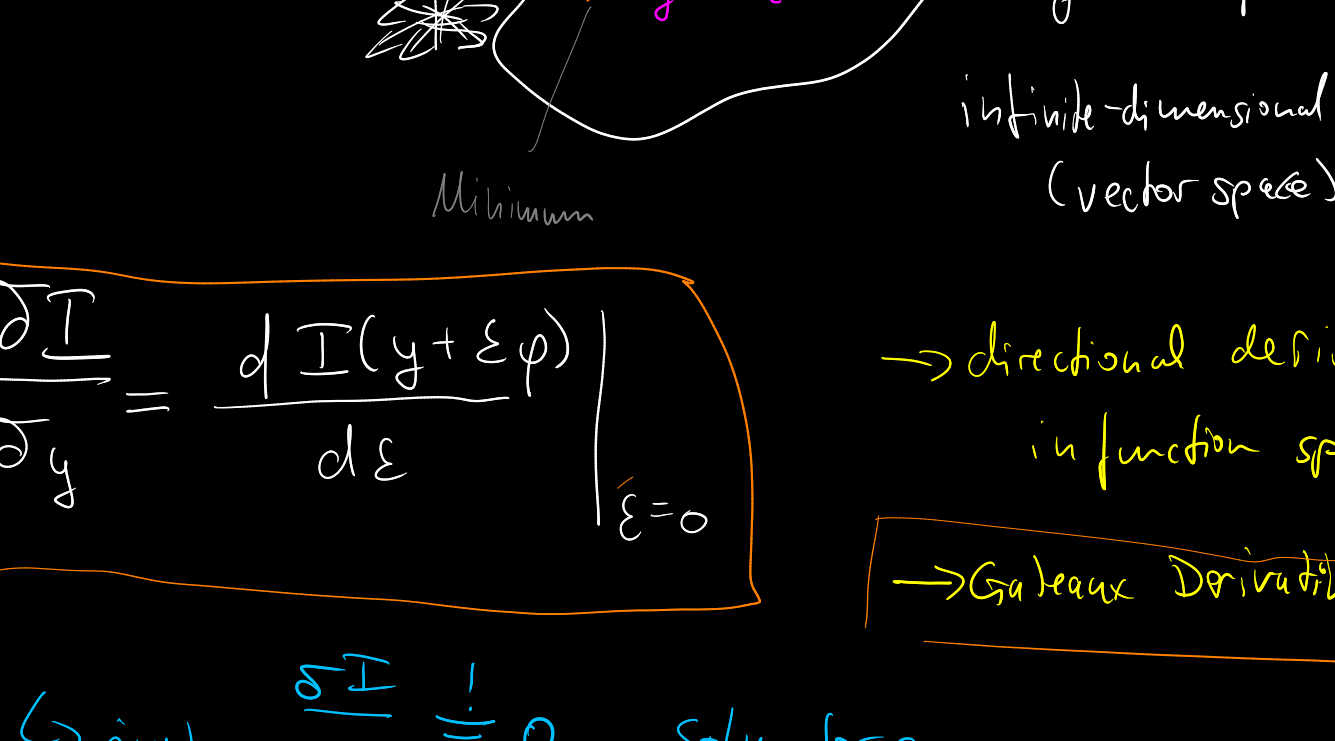 infinite-dimensional
(vector space)
Minimum
δI/δy = d I(y + εφ)/dε |ε=0
→ directional deri
in function sp
→ Gateaux Derivati
δI != 0